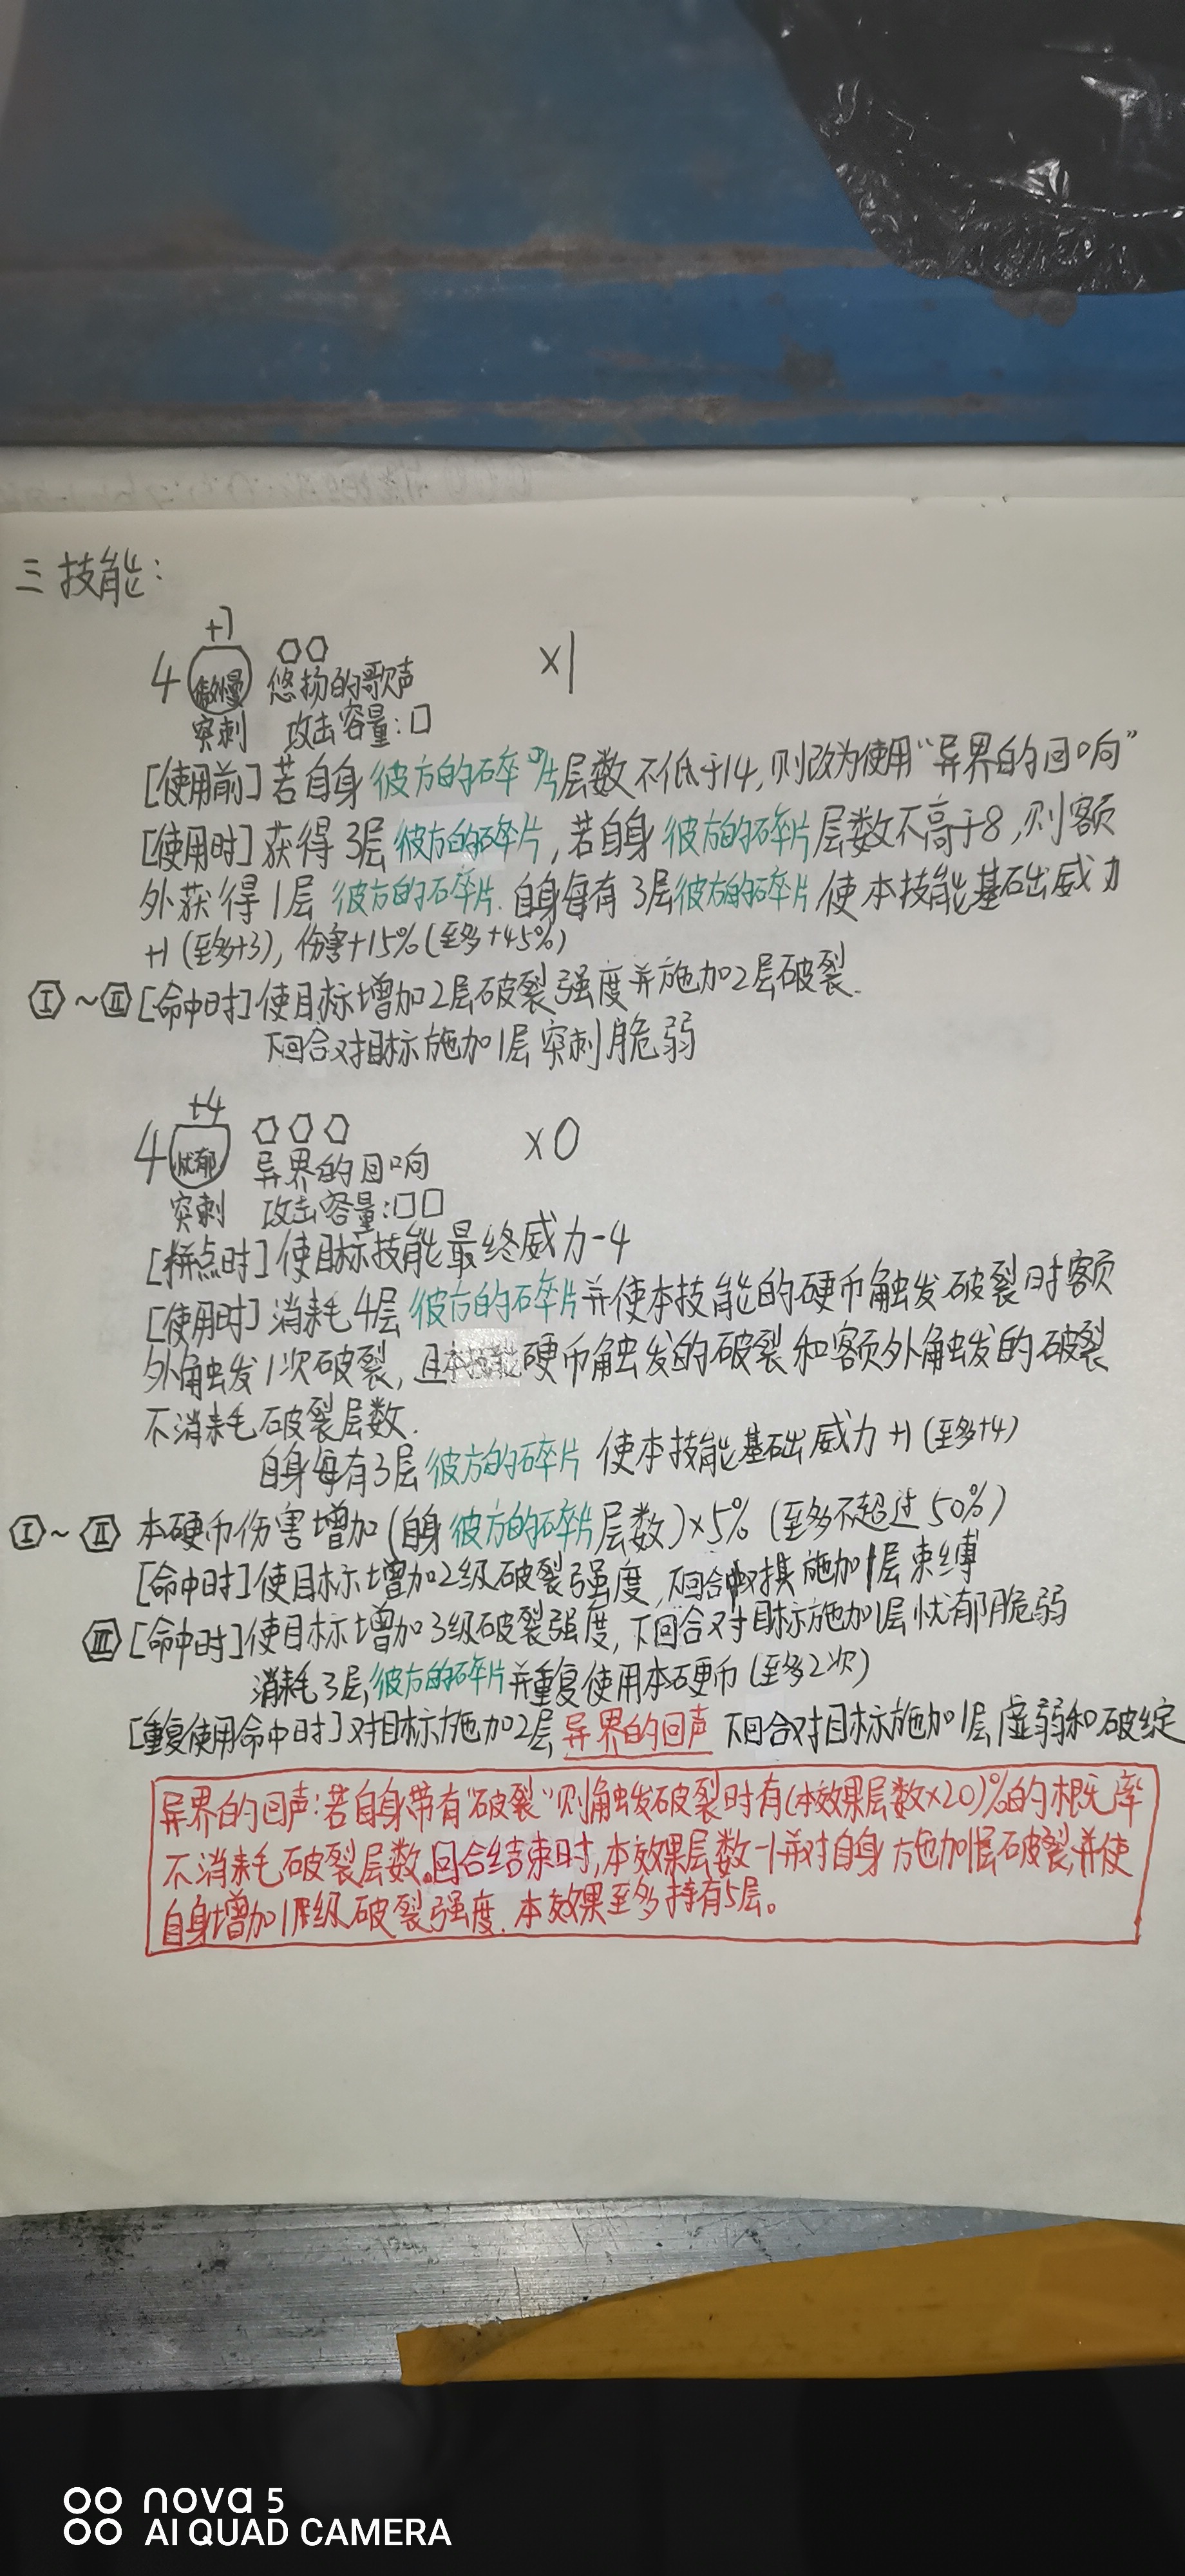 三技能:
+7
4 傲慢 悠扬的歌声 ×1
突刺 攻击容量:□
[使用前]若自身彼方的碎片层数不低于14,则改为使用“异界的回响”
[使用时]获得3层彼方的碎片,若自身彼方的碎片层数不高于8,则额
外获得1层彼方的碎片.自身每有3层彼方的碎片使本技能基础威力
+1(至多+3),伤害+15%(至多+45%)
Ⅰ~Ⅱ[命中时]使目标增加2层破裂强度并施加2层破裂.
下回合对目标施加1层突刺脆弱
+4
4 忧郁 异界的回响 ×0
突刺 攻击容量:□□
[拼点时]使目标技能最终威力-4
[使用时]消耗4层彼方的碎片并使本技能的硬币触发破裂时额
外触发1次破裂,且本技能硬币触发的破裂和额外触发的破裂
不消耗破裂层数.
自身每有3层彼方的碎片使本技能基础威力+1(至多+4)
Ⅰ~Ⅱ 本硬币伤害增加(自身彼方的碎片层数)×5%(至多不超过50%)
[命中时]使目标增加2级破裂强度,下回合对其施加1层束缚
Ⅲ[命中时]使目标增加3级破裂强度,下回合对目标施加1层忧郁脆弱
消耗3层彼方的碎片并重复使用本硬币(至多2次)
[重复使用命中时]对目标施加2层异界的回声 下回合对目标施加1层虚弱和破绽
异界的回声:若自身带有“破裂”则触发破裂时有(本效果层数×20)%的概率
不消耗破裂层数。回合结束时,本效果层数-1并对自身施加1层破裂,并使
自身增加1级破裂强度.本效果至多持有5层。
nova 5
AI QUAD CAMERA